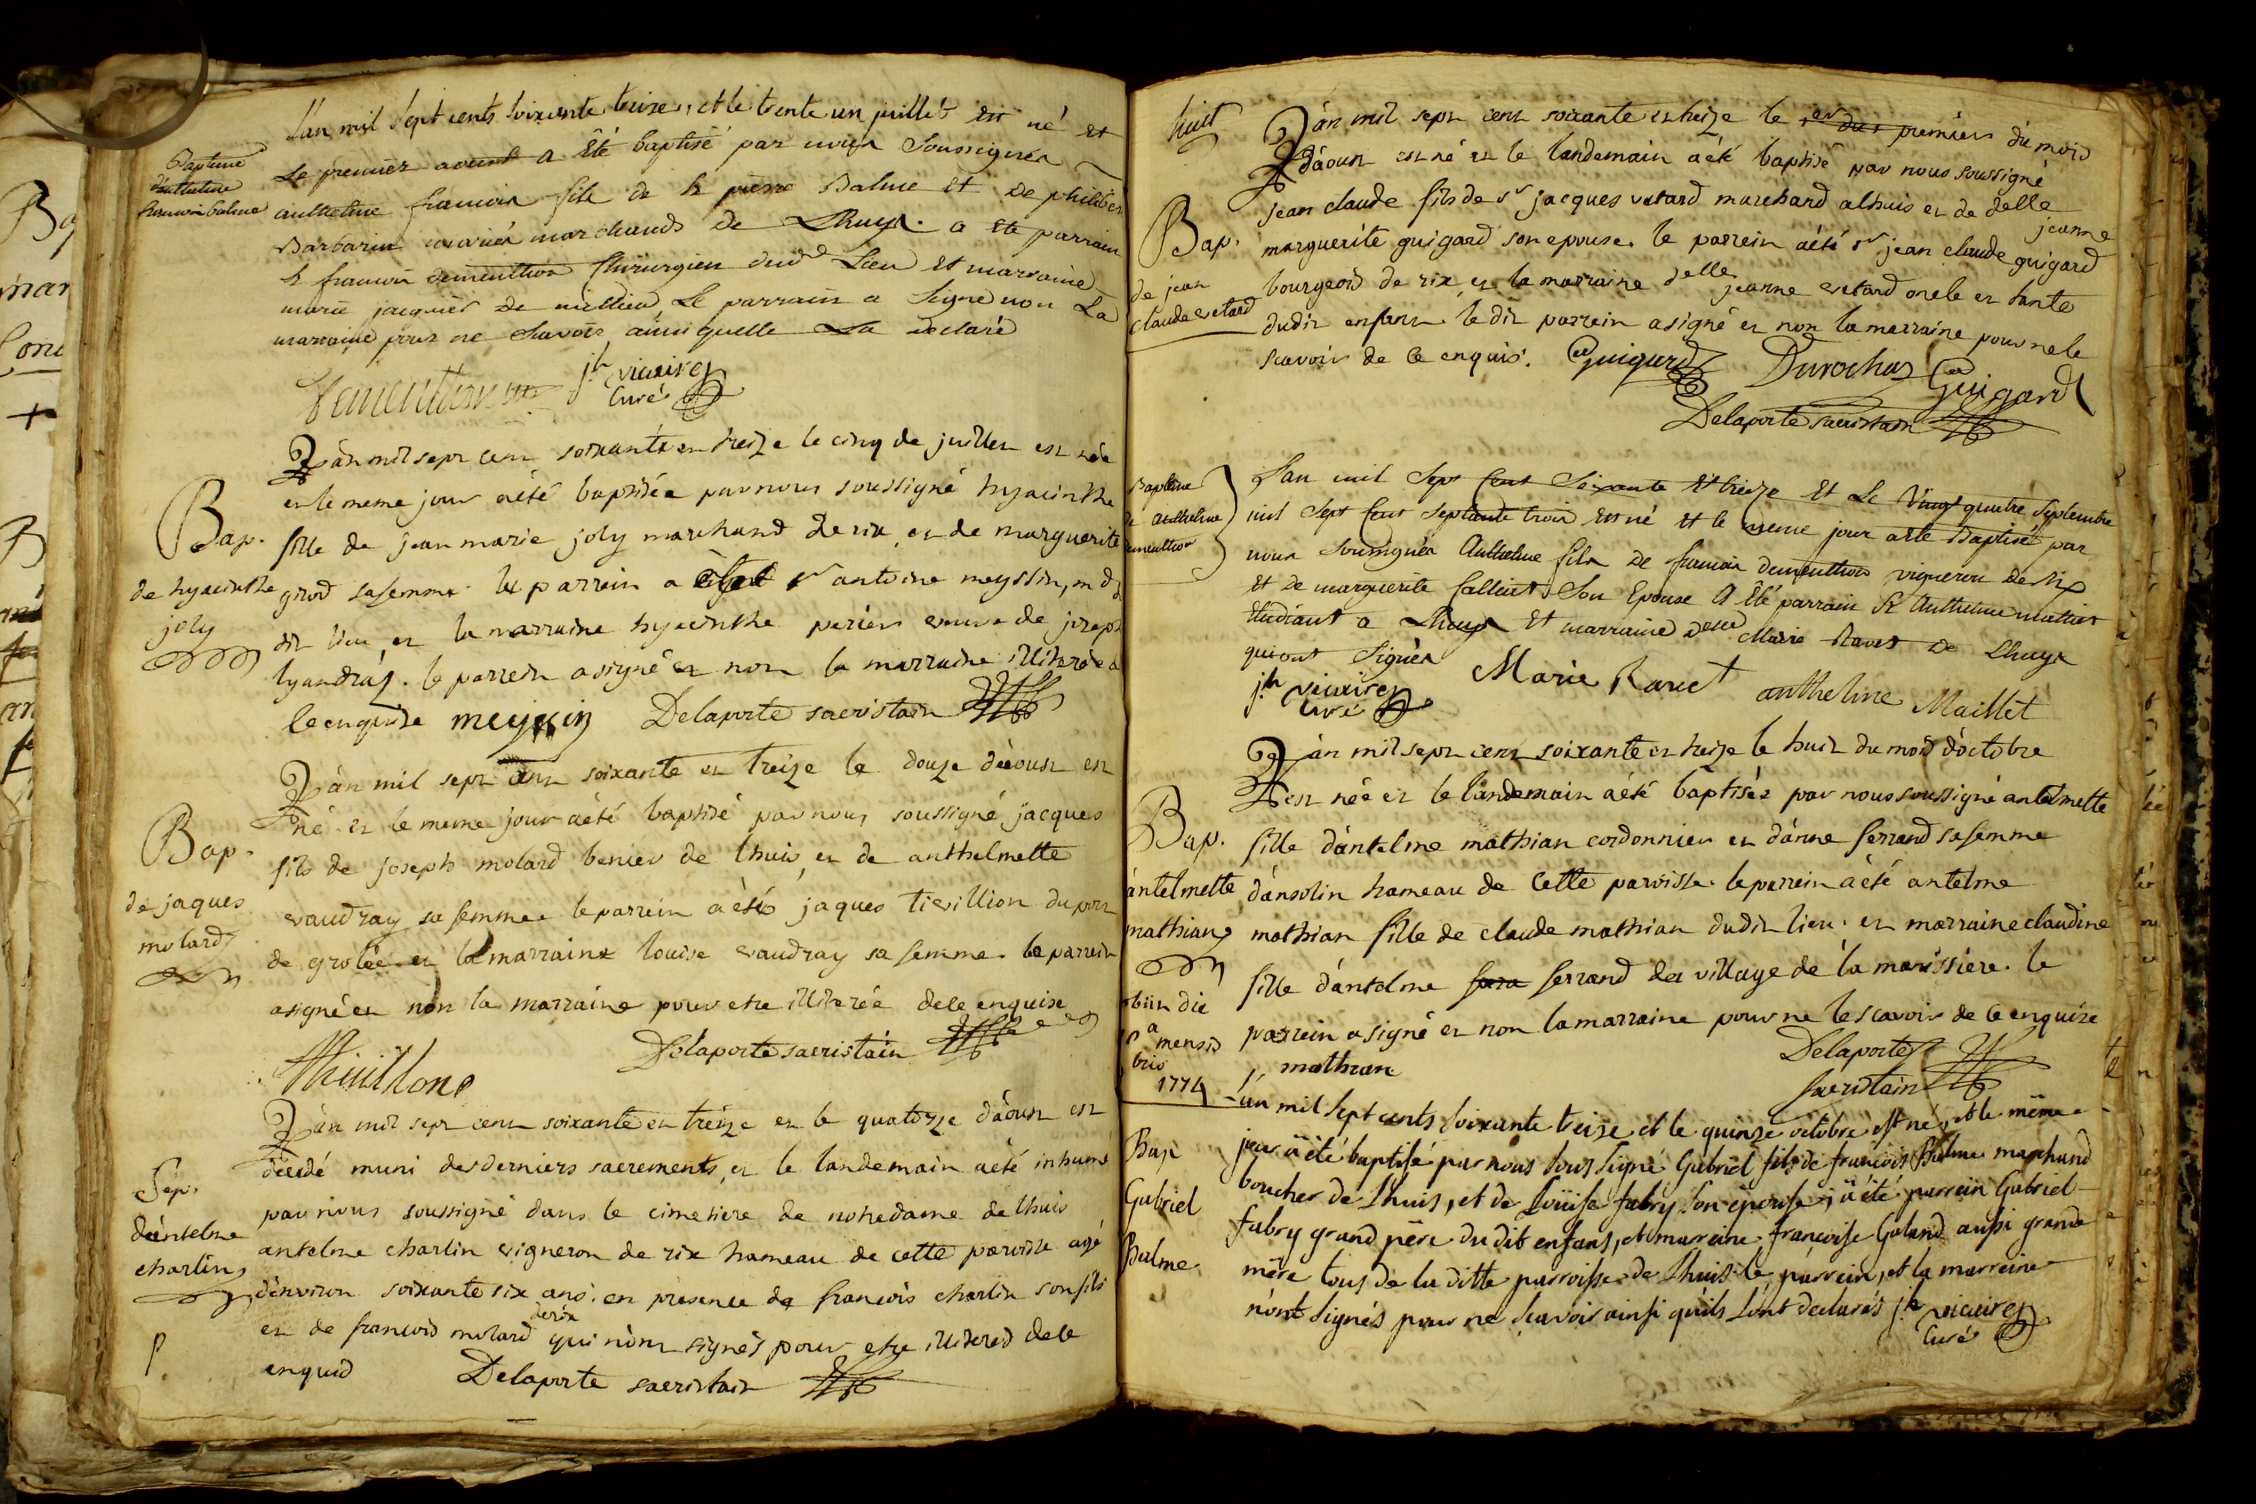 L'an mil sept cents soixante treize, et le trente un juillet est né et
Le premier aoust a Été baptisé par nous Soussignés
Baptême
d'anthelme
françois balme
anthelme françois fils de Sr pierre Balme Et De philiber
Barbarin mariés marchands De Lhuys. a été parrain
Sr françois dementhon Chirurgien dud Lieu Et marraine
marie jacquier De millieu Le parrain a Signé non La
marraine pour ne Scavoir ainsi quelle La declaré
Dementhon
jh vicaire
Curé
L'àn mil sept cent soixante et treize le cinq de juillet est née
et le meme jour a été baptisée par nous soussigné hyacinthe
Bap.
de hyacinthe
joly
fille de jean marie joly marchand de rix, et de marguerite
girod sa femme. le parrein a été sr antoine meyssin, md
dit lieu et la marraine hyacinthe perier veuve de joseph
lyandraz. le parrein a signé et non la marraine illiterée
ce enquise meyssin Delaporte sacristain
L'àn mil sept cent soixante et treize le douze d'àoust est
né et le meme jour a été baptisé par nous soussigné jacques
Bap.
de jaques
molard
fils de joseph molard benier de lhuis, et de anthelmette
vaudray sa femme le parrein a été jaques tievillion du port
de grolée et la marraine louise vaudray sa femme. le parrein
a signé et non la marraine pour etre illiterée de ce enquise
Delaporte sacristain
Thivillon
L'àn mil sept cent soixante et treize et le quatorze d'àoust est
décidé muni des derniers sacrements, et le landemain a été inhumé
Sep.
d'àntelme
charlin
par nous soussigné dans le cimetiere de notredame de lhuis
antelme charlin vigneron de rix hameau de cette paroisse agé
d'environ soixante six ans. en presence de françois charlin son fils
et de françois molard de rix qui n'ont signés pour etre illiterés de ce
enquis Delaporte sacristain
P
huit
L'àn mil sept cent soixante et treize le premier du mois
d'àoust est né et le landemain a été baptisé par nous soussigné
Bap.
de jean
claude vetard
jean claude fils de sr jacques vetard marchand a lhuis et de delle jeanne
marguerite guigard son epouse. le parrein a été sr jean claude guigard
bourgeois de rix et la marraine delle jeanne vetard oncle et tante
dudit enfant. le dit parrein a signé et non la marraine pour ne le
scavoir de ce enquis. Guigard Durochaz Guigard
Delaporte sacristain
Baptême
de anthelme
dementhon
L'an mil Sept Cent Soixante Et treize Et Le Vingt quatre Septembre
mil Sept Cent Septante trois Est né Et le meme jour a été Baptisé par
nous Soussignés Anthelme fils De françois dementhon vigneron De Rix
Et De marguerite Callient Son Epouse A Été parrain Sr Anthelme maillet
Etudiant a Lhuys Et marraine Delle Marie Ravet De Lhuys
qui ont Signés
jh vicaire
Curé
Marie Ravet anthelme Maillet
L'àn mil sept cent soixante et treize le huit du mois d'octobre
est née et le landemain a été baptisée par nous soussigné antelmette
Bap.
àntelmette
mathian
fille d'àntelme mathian cordonnier et d'ànne ferrand sa femme
d'ànsolin hameau de cette paroisse. le parrein a été antelme
mathian fille de claude mathian dudit lieu. et marraine claudine
fille d'àntelme ferrand du village de la marissiere. le
parrein a signé et non la marraine pour ne le scavoir de ce enquise
mathian
Delaporte
sacristain
obiit die
mensis
bris
1774
L'an mil Sept cents soixante treize et le quinze octobre est né, et le même
jour a été baptisé par nous Sous Signé Gabriel fils de françois Balme marchand
Bap
Gabriel
Balme
boucher de Lhuis, et de Loüise fabry Son épouse, a été parrein Gabriel
fabry grand père du dit enfans, et mareine françoise Goland aussi grande
mère tous de la ditte parroisse de Lhuis le parrein, et la marreine
n'ont signés pour ne Sçavoir ainsi qu'ils l'ont declarés jh vicaire
Curé